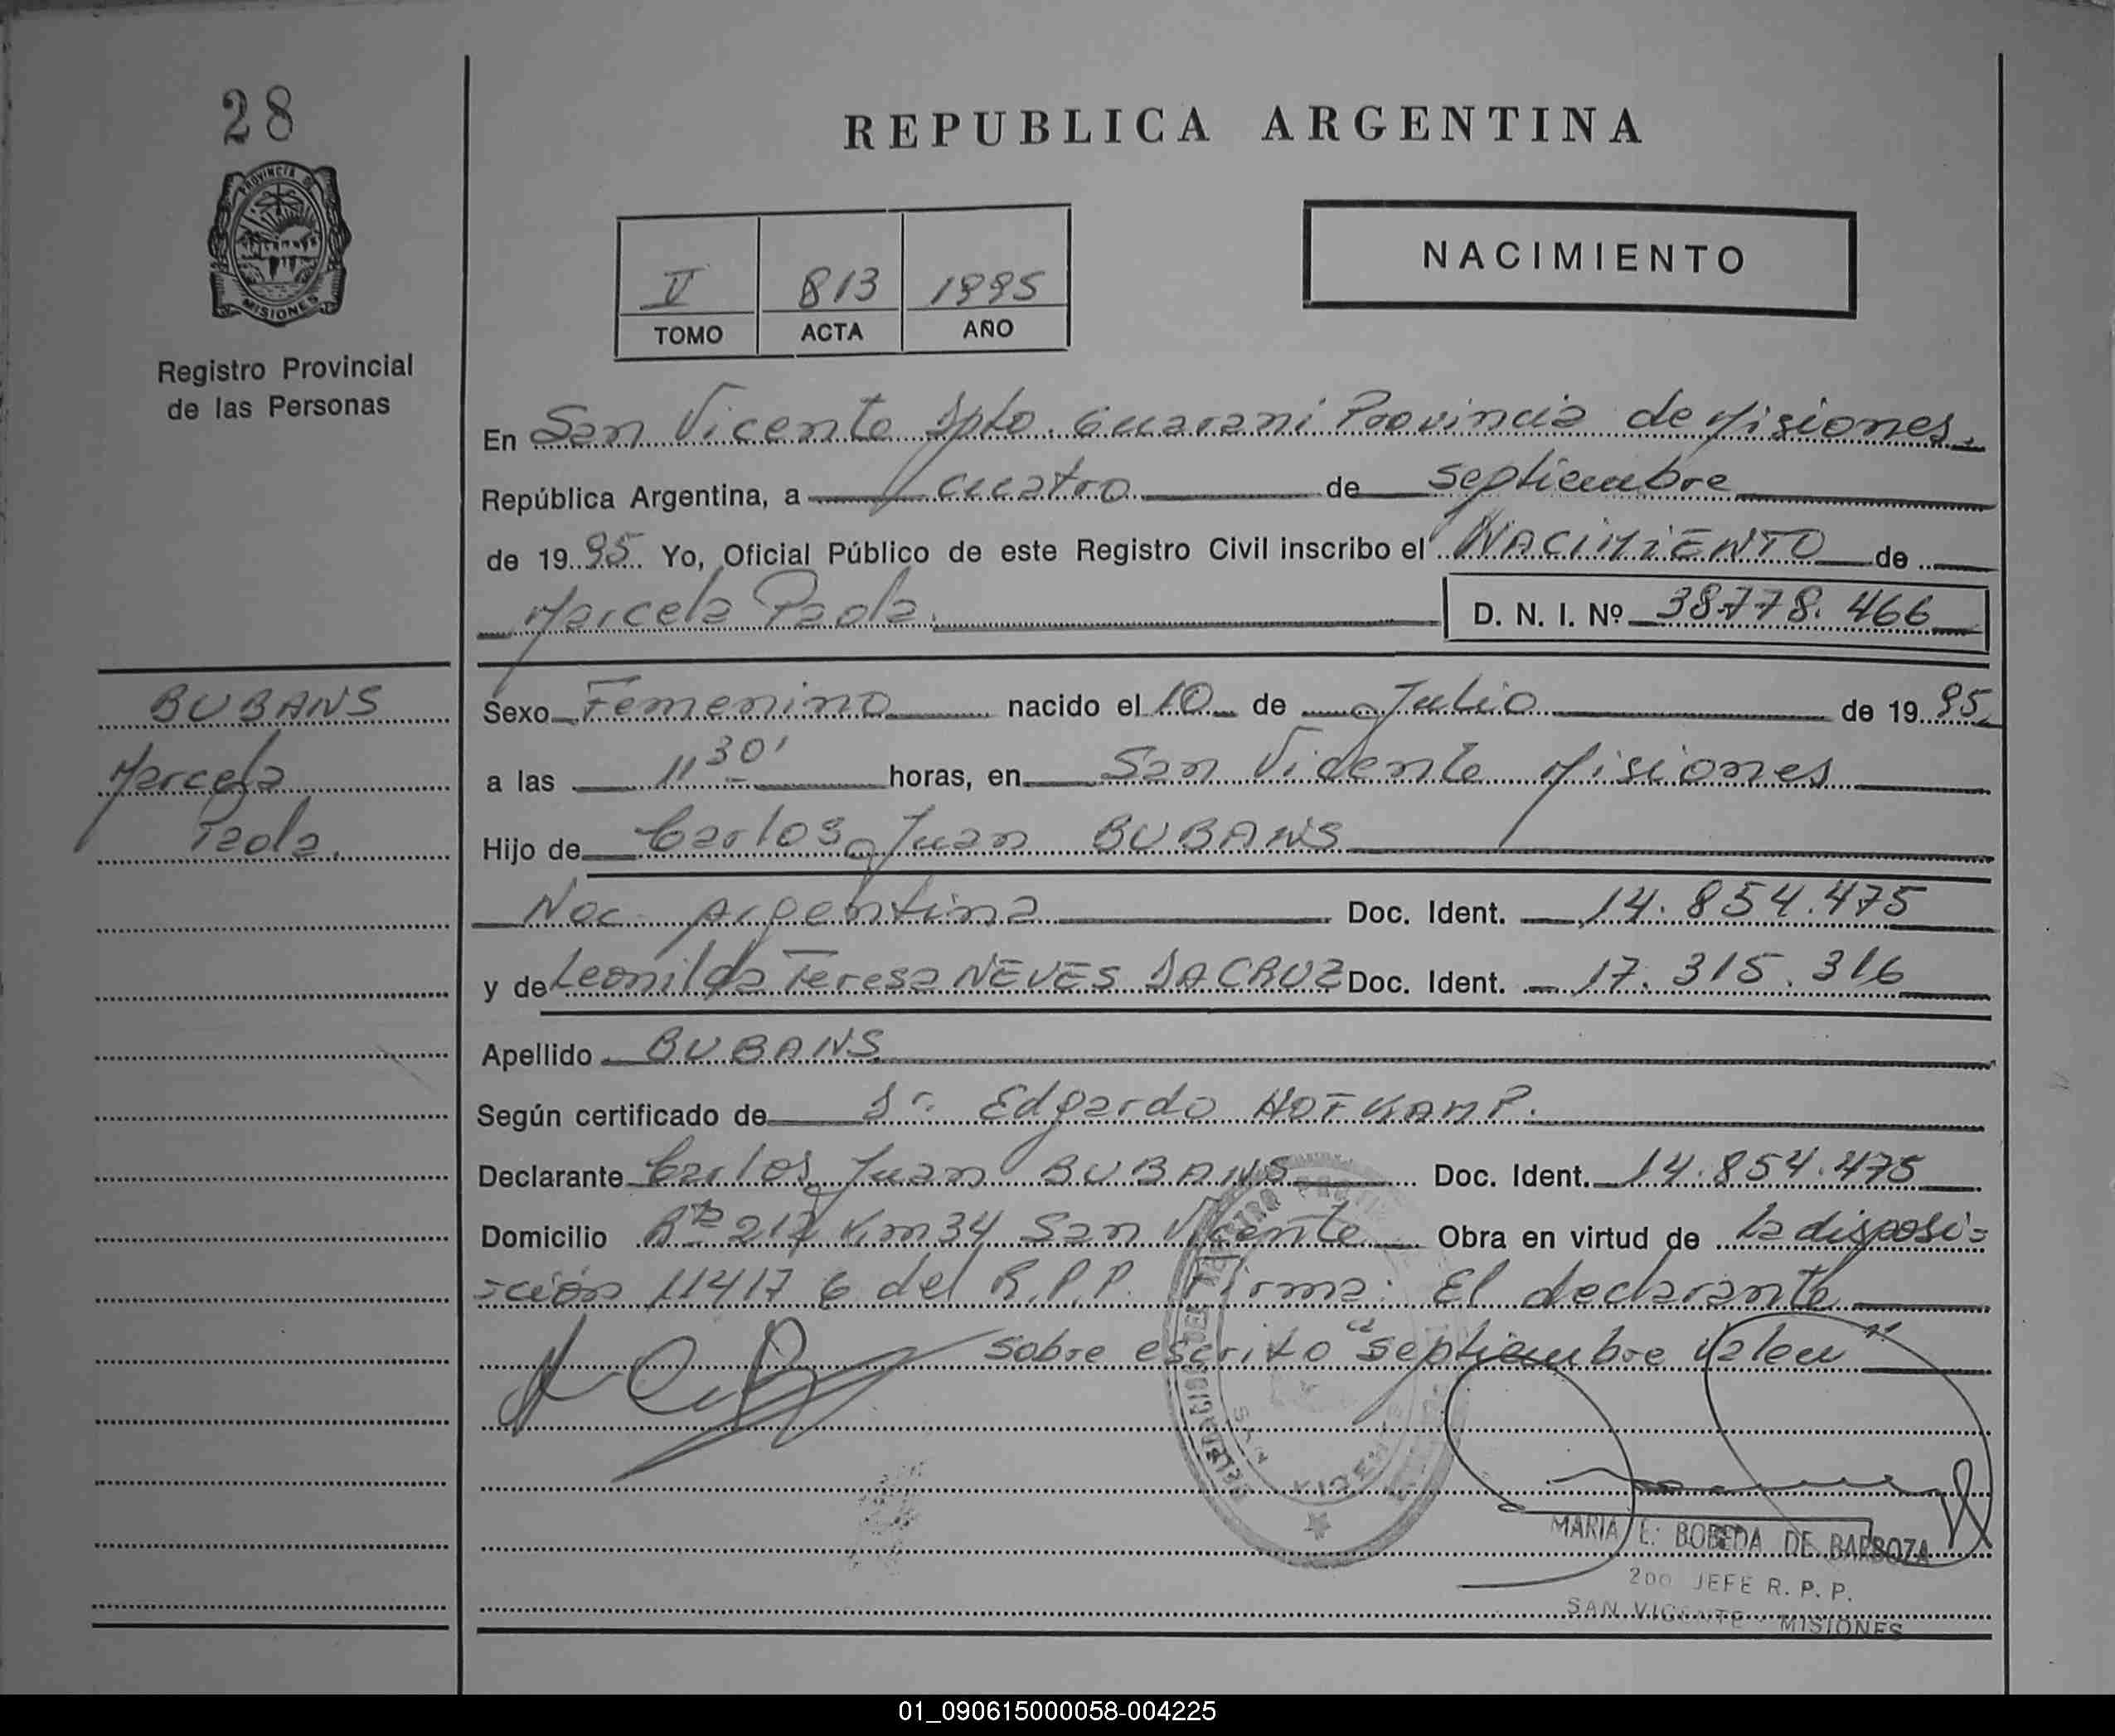 28
PROVINCIA DE
MISIONES
Registro Provincial
de las Personas
REPUBLICA ARGENTINA
II 813 1995
TOMO ACTA AÑO
NACIMIENTO
En San Vicente Dpto. Guaraní Provincia de Misiones.
República Argentina, a cuatro de septiembre
de 1995 Yo, Oficial Público de este Registro Civil inscribo el NACIMIENTO de
Marcela Paola. D. N. I. Nº 38.778.466
BUBANS
Marcela
Paola.
Sexo Femenino nacido el 10 de Julio de 1995
a las 11 30' horas, en San Vicente Misiones
Hijo de Carlos Juan BUBANS
Nac. Argentina Doc. Ident. 14.854.475
y de Leonilda Teresa NEVES DA CRUZ Doc. Ident. 17.315.316
Apellido BUBANS
Según certificado de Dr. Edgardo HOFKAMP.
Declarante Carlos Juan BUBANS Doc. Ident. 14.854.475
Domicilio Rta 212 Km 34 San Vicente Obra en virtud de la disposi-
-ción 114176 del R.P.P. Firma: El declarante
sobre escrito "septiembre valen"
MARIA E. BOBEDA DE BARBOZA
2do JEFE R. P. P.
SAN VICENTE - MISIONES
01_090615000058-004225